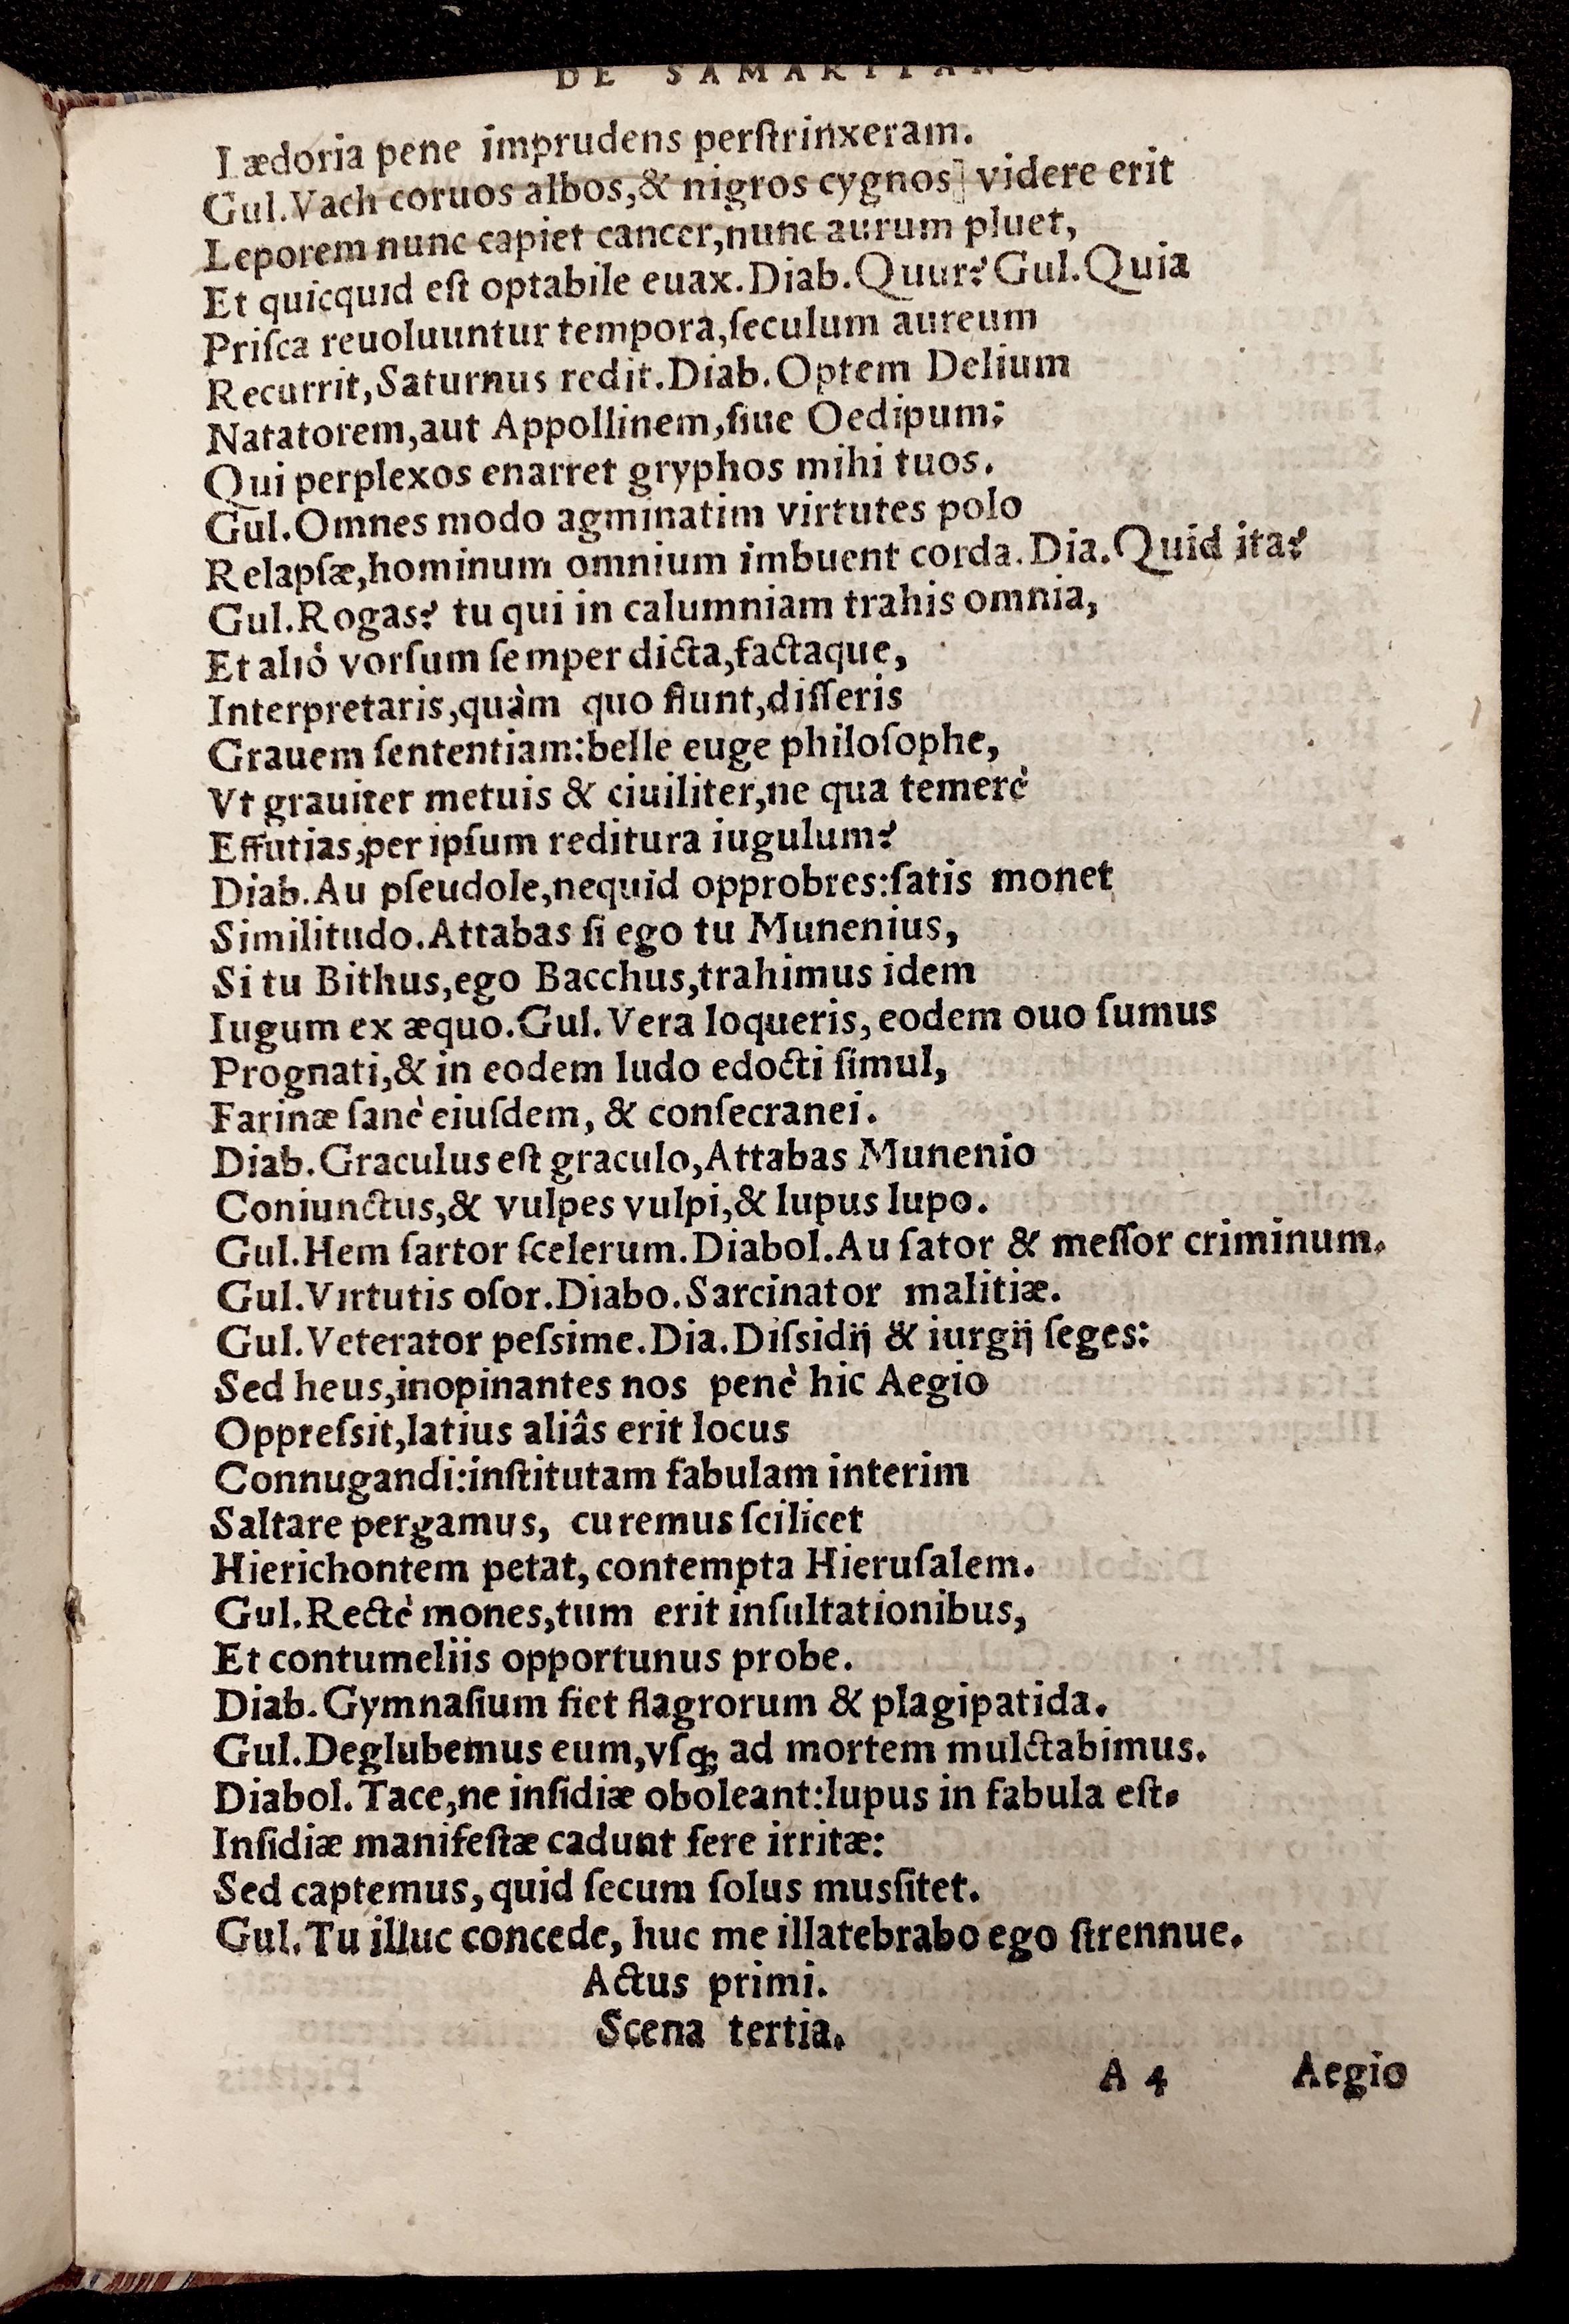 DE SAMARITANO.
Lædoria pene imprudens perſtrinxeram.
Gul.Vach coruos albos,& nigros cygnos] videre erit
Leporem nunc capiet cancer,nunc aurum pluet,
Et quicquid eſt optabile euax.Diab.Quur? Gul.Quia
Priſca reuoluuntur tempora,ſeculum aureum
Recurrit,Saturnus redit.Diab.Optem Delium
Natatorem,aut Appollinem,ſiue Oedipum:
Qui perplexos enarret gryphos mihi tuos.
Gul.Omnes modo agminatim virtutes polo
Relapſæ,hominum omnium imbuent corda.Dia.Quid ita?
Gul.Rogas? tu qui in calumniam trahis omnia,
Et aliò vorſum ſemper dicta,factaque,
Interpretaris,quàm quo fiunt,diſſeris
Grauem ſententiam:belle euge philoſophe,
Vt grauiter metuis & ciuiliter,ne qua temerè
Effutias,per ipſum reditura iugulum?
Diab.Au pſeudole,nequid opprobres:ſatis monet
Similitudo.Attabas ſi ego tu Munenius,
Si tu Bithus,ego Bacchus,trahimus idem
Iugum ex æquo.Gul.Vera loqueris, eodem ouo ſumus
Prognati,& in eodem ludo edocti ſimul,
Farinæ ſanè eiuſdem, & conſecranei.
Diab.Graculus eſt graculo,Attabas Munenio
Coniunctus,& vulpes vulpi,& lupus lupo.
Gul.Hem ſartor ſcelerum.Diabol.Au ſator & meſſor criminum.
Gul.Virtutis oſor.Diabo.Sarcinator malitiæ.
Gul.Veterator peſsime.Dia.Diſsidij & iurgij ſeges:
Sed heus,inopinantes nos penè hic Aegio
Oppreſsit,latius aliâs erit locus
Connugandi:inſtitutam fabulam interim
Saltare pergamus, curemus ſcilicet
Hierichontem petat, contempta Hieruſalem.
Gul.Rectè mones,tum erit inſultationibus,
Et contumeliis opportunus probe.
Diab.Gymnaſium fiet flagrorum & plagipatida.
Gul.Deglubemus eum,vſq; ad mortem mulctabimus.
Diabol.Tace,ne inſidiæ oboleant:lupus in fabula eſt.
Inſidiæ manifeſtæ cadunt fere irritæ:
Sed captemus, quid ſecum ſolus muſsitet.
Gul.Tu illuc concede, huc me illatebrabo ego ſtrennue.
Actus primi.
Scena tertia.
A 4 Aegio